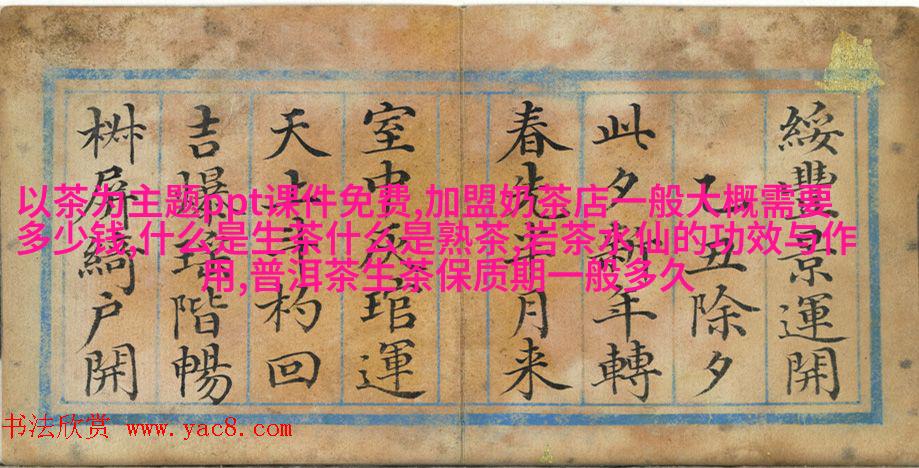 綏豐景運開
乙丑除夕
此夕新年轉
春先半月来
室中灰琯運
天上斗杓回
吉爆瑶階暢
椒屏綺户開
以茶为主题ppt课件免费,加盟奶茶店一般大概需要
多少钱,什么是生茶什么是熟茶,岩茶水仙的功效与作
用,普洱茶生茶保质期一般多久
书法欣赏 www.yac8.com